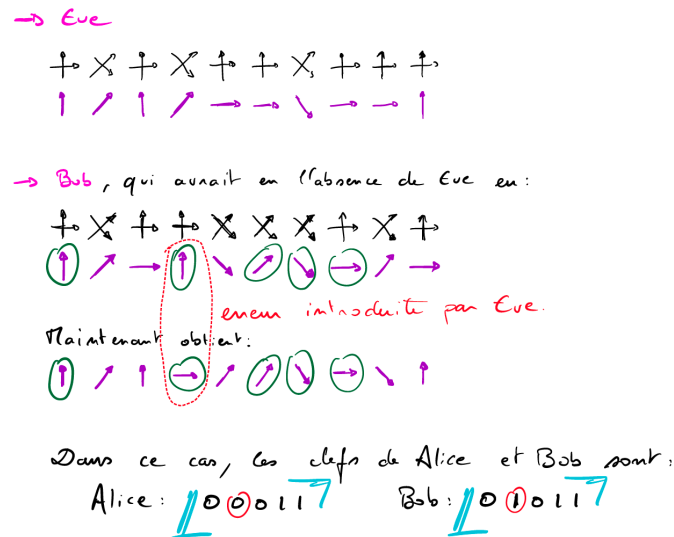 → Eve
→ Bob, qui aurait en l'absence de Eve eu:
erreur introduite par Eve.
Maintenant obtient:
Dans ce cas, les clefs de Alice et Bob sont:
Alice: 00011 Bob: 01011